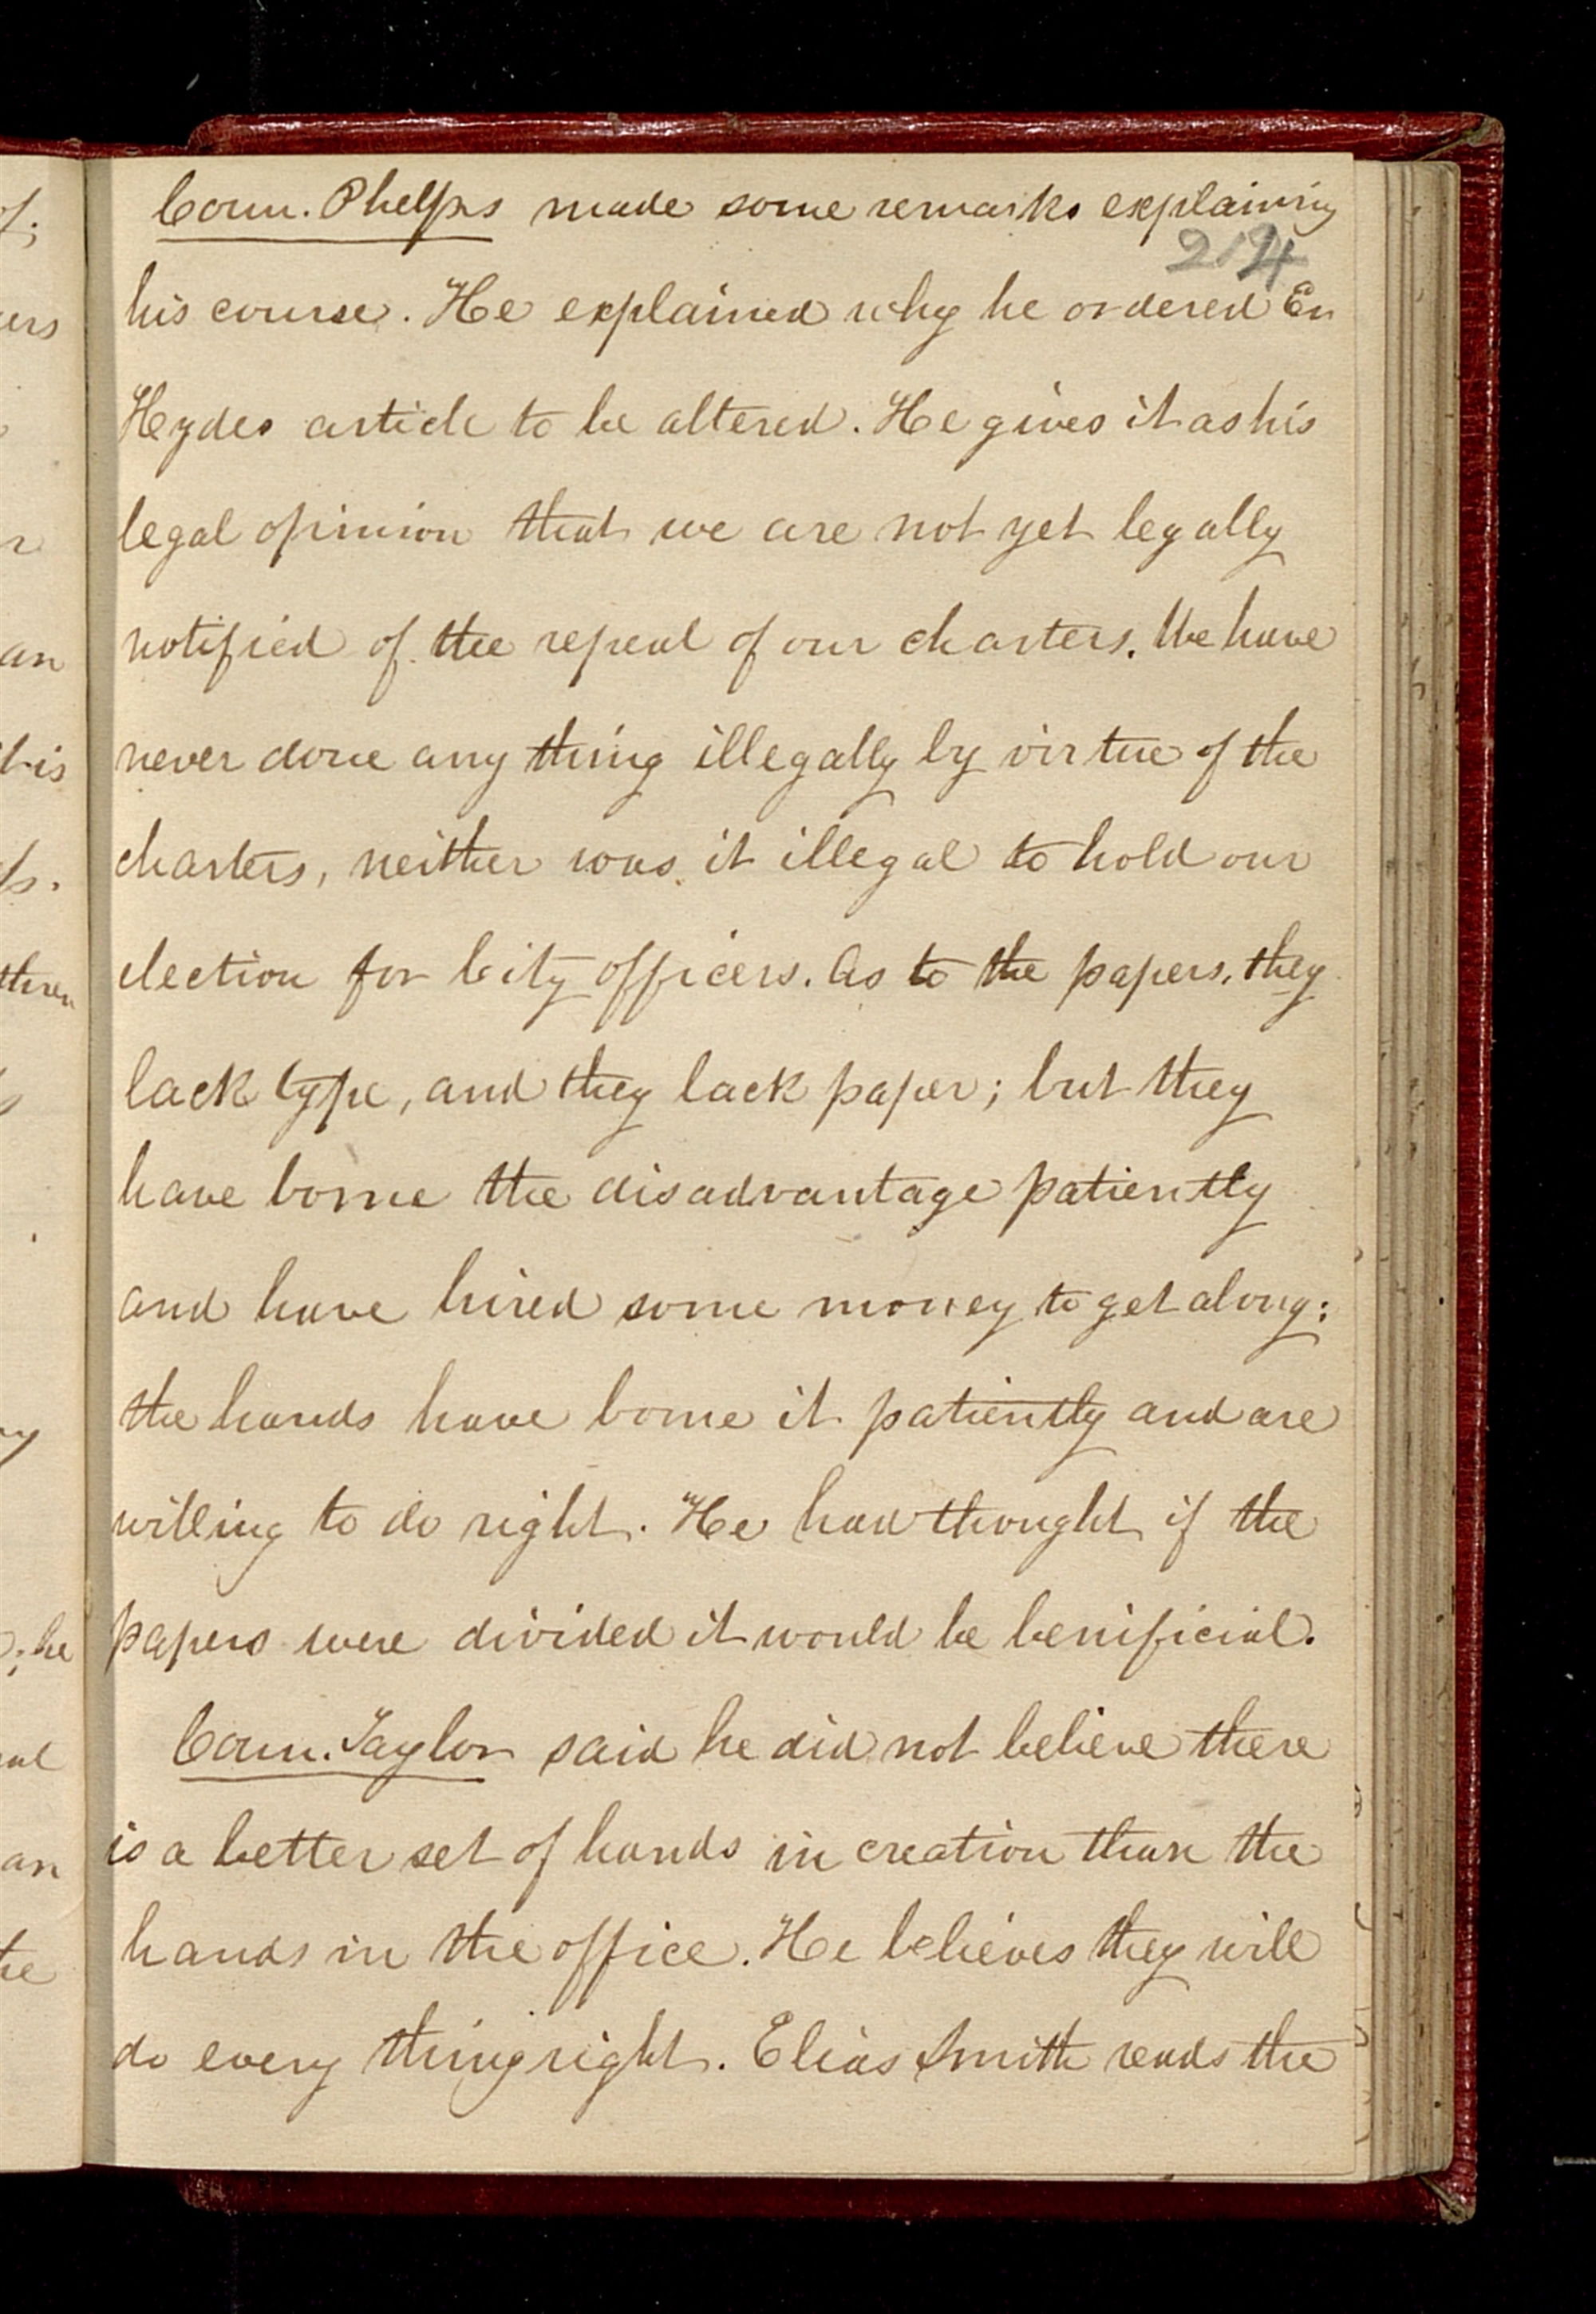 Coun. Phelps made some remarks explaining
214
his course. He explained why he ordered Er
Hydes article to be altered. He gives it as his
legal opinion that we are not yet legally
notified of the repeal of our charters. We have
never done any thing illegally by virtue of the
charters, neither was it illegal to hold our
election for City officers. As to the papers, they
lack type, and they lack paper; but they
have borne the disadvantage patiently
and have hired some money to get along;
the hands have borne it patiently and are
willing to do right. He had thought if the
papers were divided it would be benificial.
Coun. Taylor said he did not believe there
is a better set of hands in creation than the
hands in the office. He believes they will
do every thing right. Elias Smith reads the